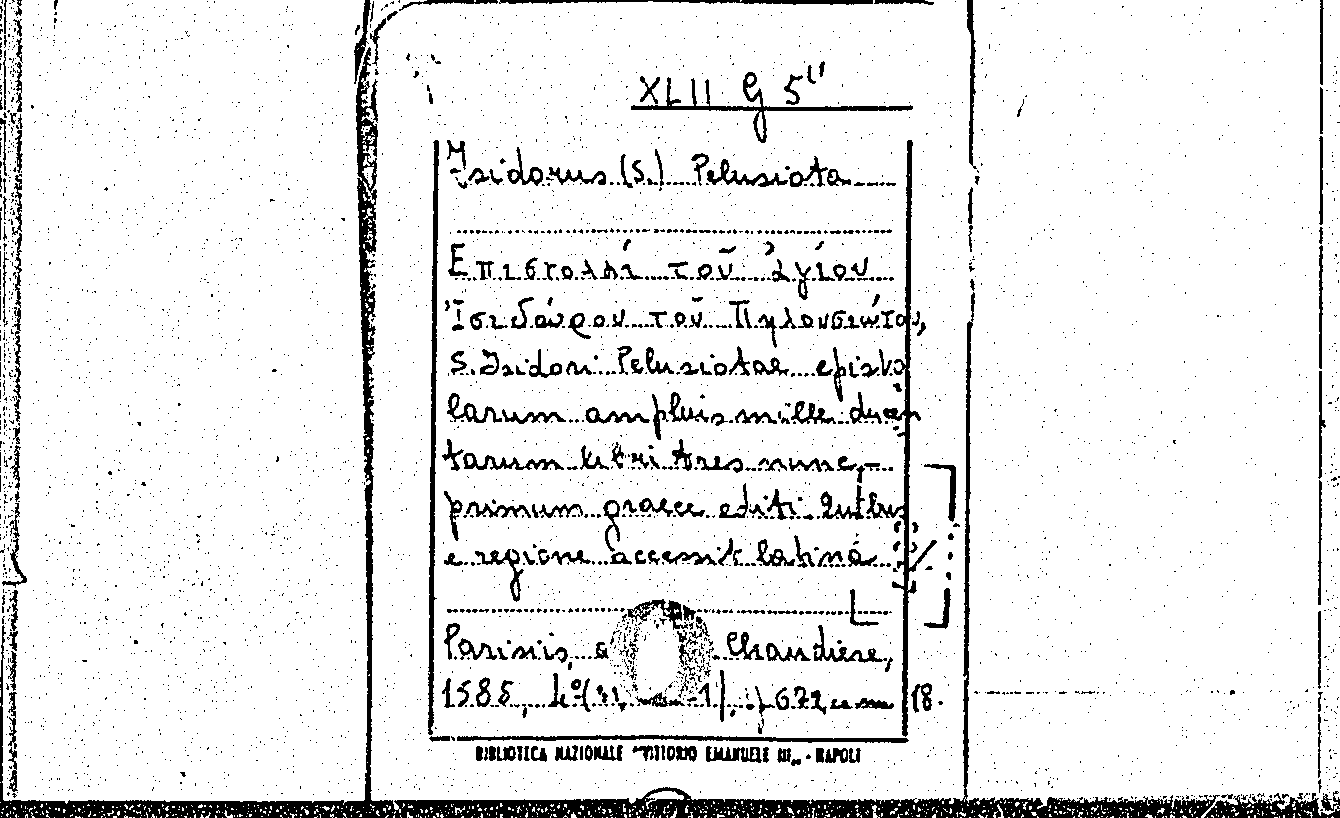 XLII G 5
Isidorus (S.) Pelusiota
Επιστολαί τοῦ ἁγίου
Ἰσιδώρου τοῦ Πηλουσιώτου,
S. Isidori Pelusiotae episto
larum amplius mille ducen
tarum libri tres nunc
primum graece editi. Quibus
e regione accessit latina
Parisiis, Chaudiere,
1585, 4º 672 18.
BIBLIOTECA NAZIONALE "VITTORIO EMANUELE III„ - NAPOLI